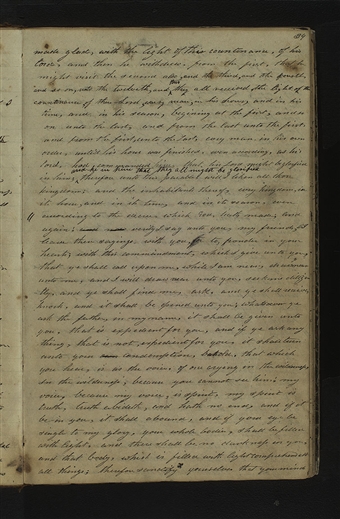 119
made glad, with the light of the countenance, of his
lord, and then he withdrew, from the first, that he
might visit the second also, and the third, and the fourth,
and so on, unto the twelfth, and they all received the light of the
countenance of their lord, every man, in his hour, and in his
time, and in his season, begining at the first, and so
on unto the last, and from the last unto the first,
and from the first, unto the last, every man in his own
order, until his hour was finished, even according as his
lord, had commanded him, that, his lord might be glorified
and he in him that, they all might be glorified
in him, therefore unto this parable will I liken all these
kingdoms, and the inhabitants thereof, every kingdom, in
its hour, and in its time, and in its season, even
according to the decree, which God, hath made, and
again, verily I say unto you, my friends, I
leave these sayings with you to, ponder in your
hearts, with this commandment, which I give unto you,
that ye shall call upon me, while I am near, draw near
unto me, and I will draw near unto you, seek me diligen
tly, and ye shall find me, ask, and ye shall receive,
knock, and it shall be opened unto you, whatsoever ye
ask the father, in my name, it shall be given unto
you, that is expedient for you, and if ye ask any
thing, that is not, expedient for you, it shall turn
unto your condemnation, behold, that which
you hear, is as the voice, of one crying in the wilderness,
in the wilderness, because you cannot see him, my
voice, because my voice, is spirit, my spirit is
truth, truth abideth, and hath no end, and if it
be in you, it shall abound, and if your eye be
single to my glory, your whole bodies, shall be filled
with light, and there shall be no darkness in you,
and that body, which is filled with light comprehendeth
all things, therefore sanctify yourselves that your minds